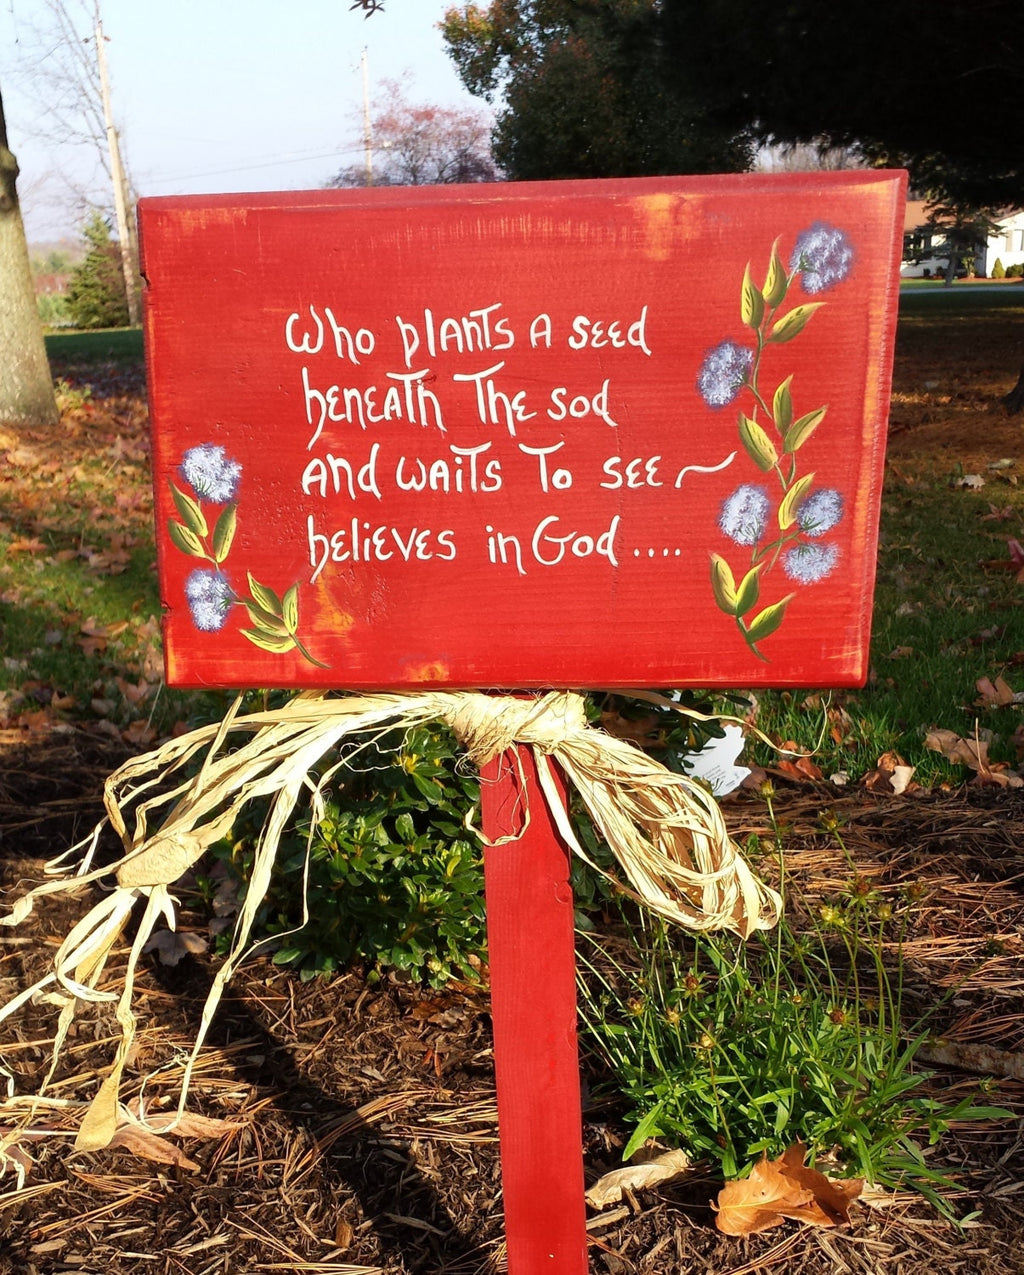 Who plants a seed
beneath the sod
and waits to see ~
believes in God ....